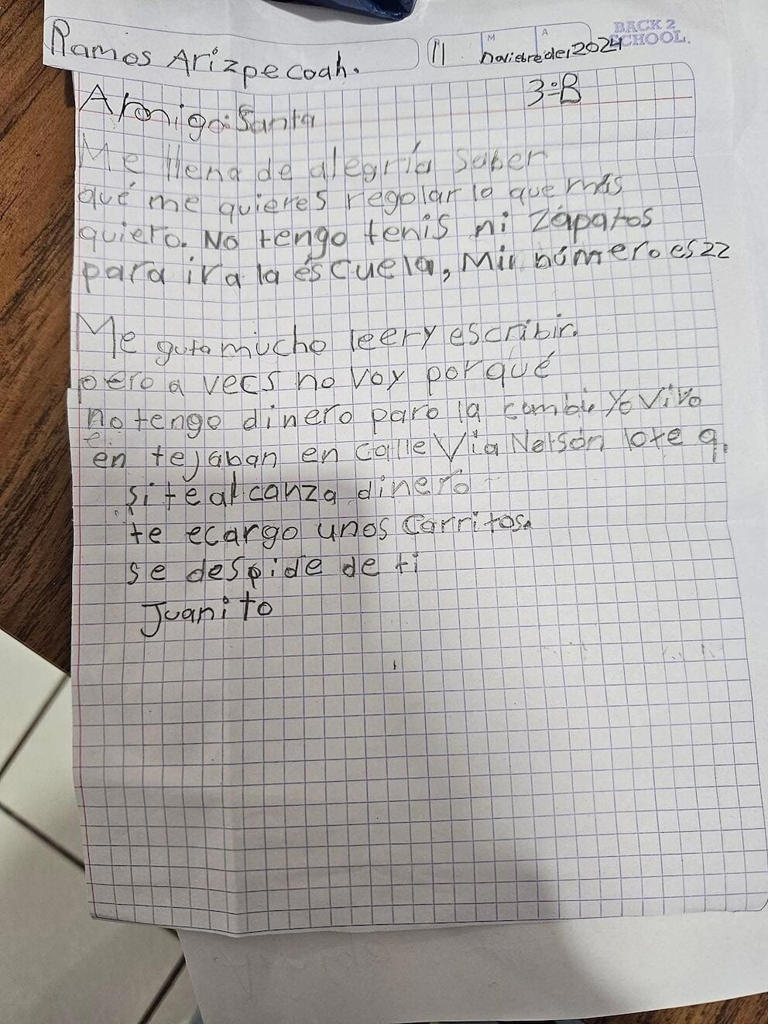 Ramos Arizpe Coah. 11 M A noviebre del 2024 BACK 2 SCHOOL.
3=B
Amigo: Santa
Me llena de alegría saber
qué me quieres regolar lo que más
quiero. No tengo tenis ni zapatos
para ir a la éscuela, Mii número es 22
Me guta mucho leer y escribir.
pero a vecs no voy porqué
no tengo dinero para la combi. Yo vivo
en tejaban en calle Vía Nelsón lote 9.
si te alcanza dinero
te ecargo unos carritos.
se despide de ti
Juanito